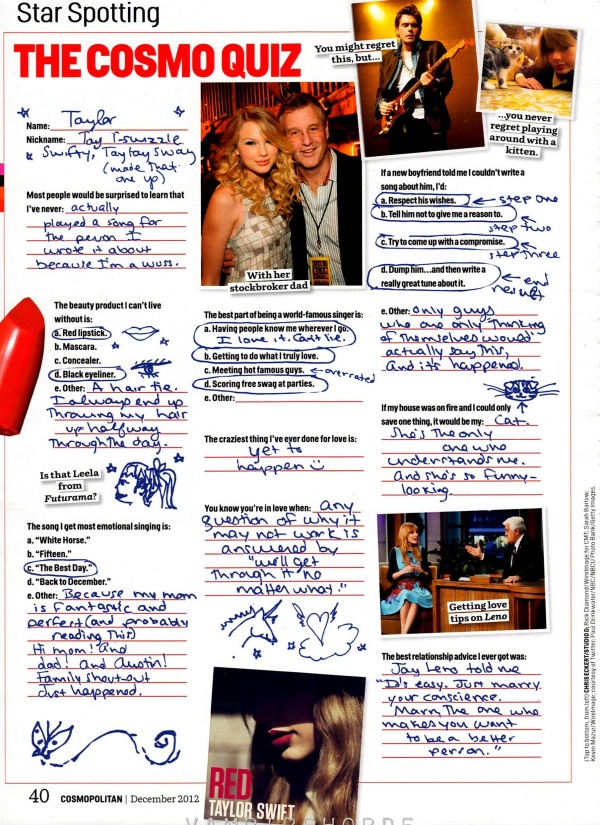 Star Spotting
THE COSMO QUIZ
Name: Taylor
Nickname: Tay T-swizzle
Swifty, Taytay Sway
(made that
one up)
Most people would be surprised to learn that
I've never: actually
played a song for
the person I
wrote it about
because I'm a wuss.
With her
stockbroker dad
You might regret
this, but...
...you never
regret playing
around with a
kitten.
The beauty product I can't live
without is:
a. Red lipstick.
b. Mascara.
c. Concealer.
d. Black eyeliner.
e. Other: A hair tie.
I always end up
throwing my hair
up halfway
through the day.
Is that Leela
from
Futurama?
The song I get most emotional singing is:
a. "White Horse."
b. "Fifteen."
c. "The Best Day."
d. "Back to December."
e. Other: Because my mom
is fantastic and
perfect (and probably
reading this)
Hi mom! And
dad! And Austin!
Family shout-out
Just happened.
The best part of being a world-famous singer is:
a. Having people know me wherever I go.
I love it. Can't lie.
b. Getting to do what I truly love.
c. Meeting hot famous guys. ← overrated
d. Scoring free swag at parties.
e. Other:
The craziest thing I've ever done for love is:
yet to
happen
You know you're in love when: any
question of why it
may not work is
answered by
"we'll get
through it no
matter what."
RED
TAYLOR SWIFT
If a new boyfriend told me I couldn't write a
song about him, I'd:
a. Respect his wishes. ← step one
b. Tell him not to give me a reason to.
step two
c. Try to come up with a compromise.
step three
d. Dump him...and then write a
really great tune about it. ← end
result
e. Other: Only guys
who are only thinking
of themselves would
actually say this,
and it's happened.
If my house was on fire and I could only
save one thing, it would be my: Cat.
She's the only
one who
understands me.
And she's so funny-
looking.
Getting love
tips on Leno
The best relationship advice I ever got was:
Jay Leno told me
"It's easy. Just marry
your conscience.
Marry the one who
makes you want
to be a better
person."
40 COSMOPOLITAN | December 2012